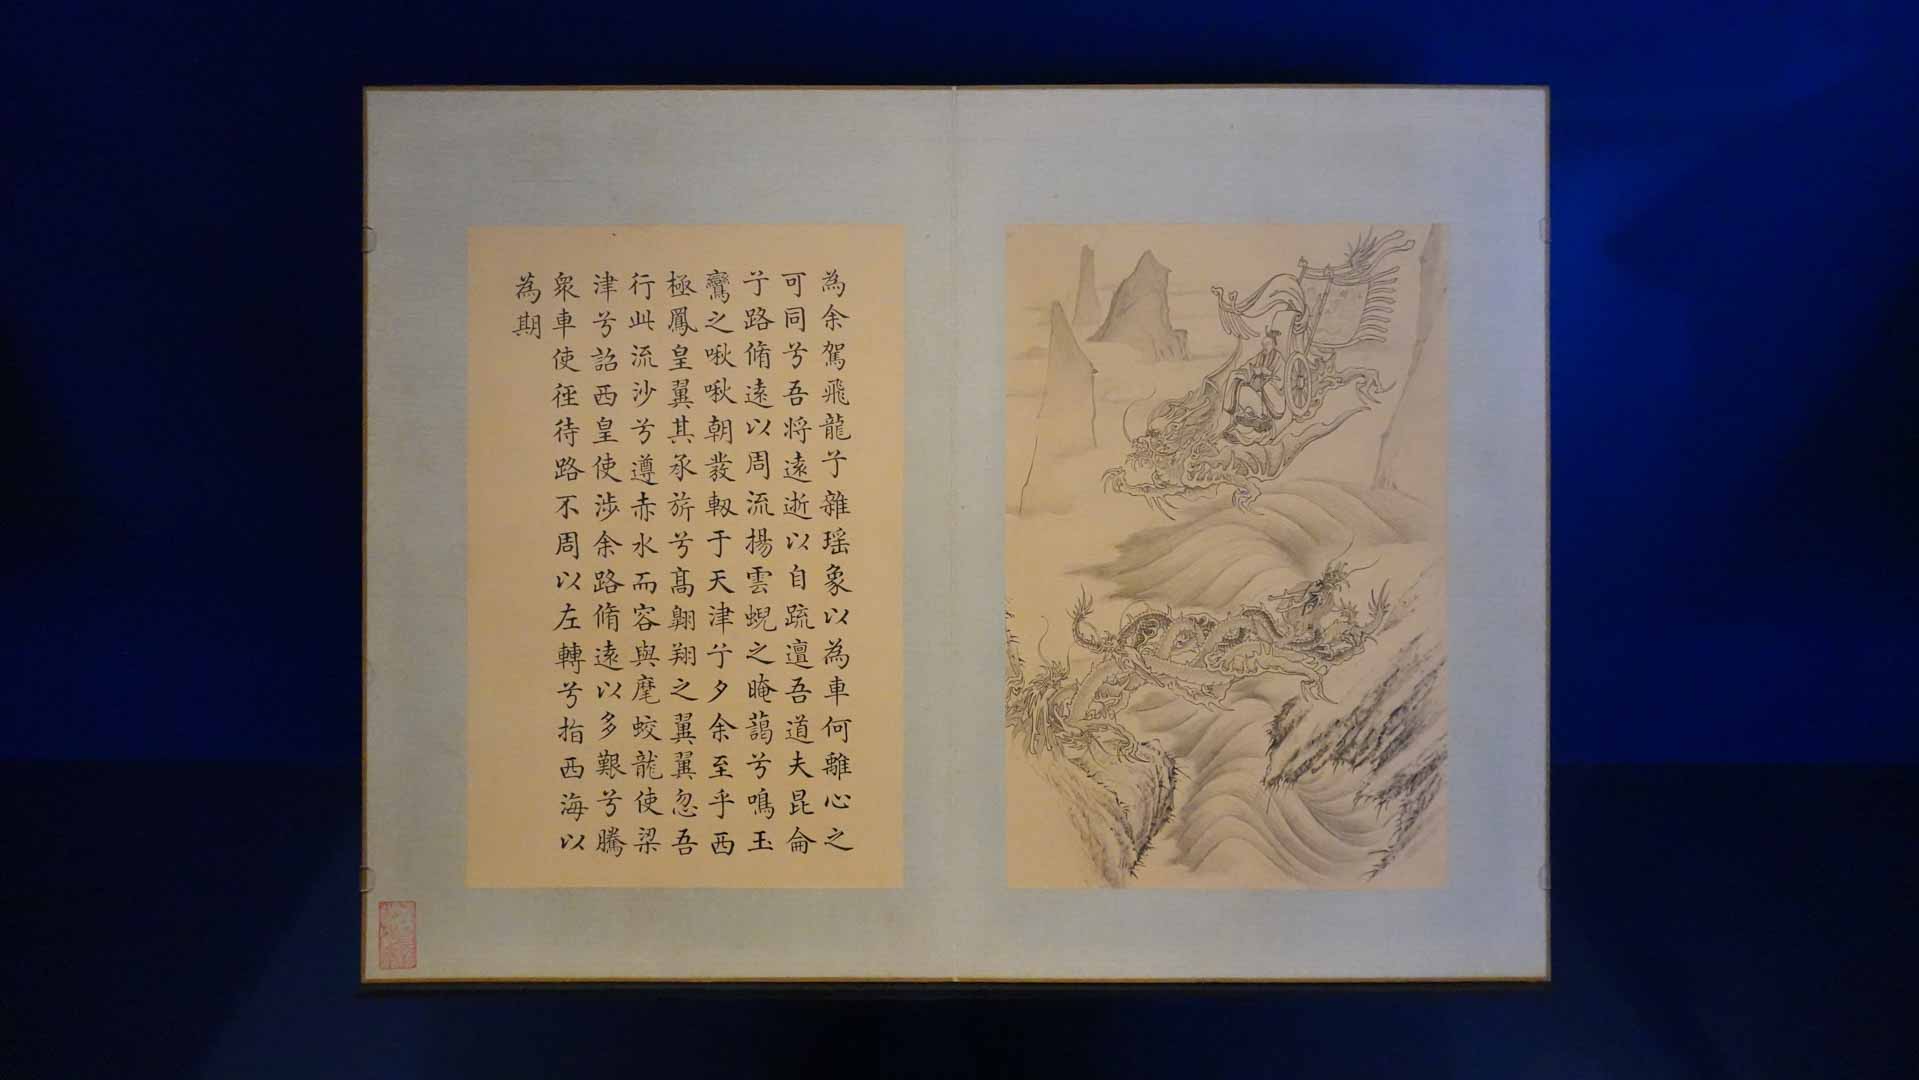 為余駕飛龍兮雜瑤象以為車何離心之
可同兮吾將遠逝以自疏邅吾道夫昆侖
兮路脩遠以周流揚雲蜺之晻藹兮鳴玉
鸞之啾啾朝發軔于天津兮夕余至乎西
極鳳皇翼其承旂兮高翺翔之翼翼忽吾
行此流沙兮遵赤水而容與麾蛟龍使梁
津兮詔西皇使涉余路脩遠以多艱兮騰
衆車使徑待路不周以左轉兮指西海以
為期